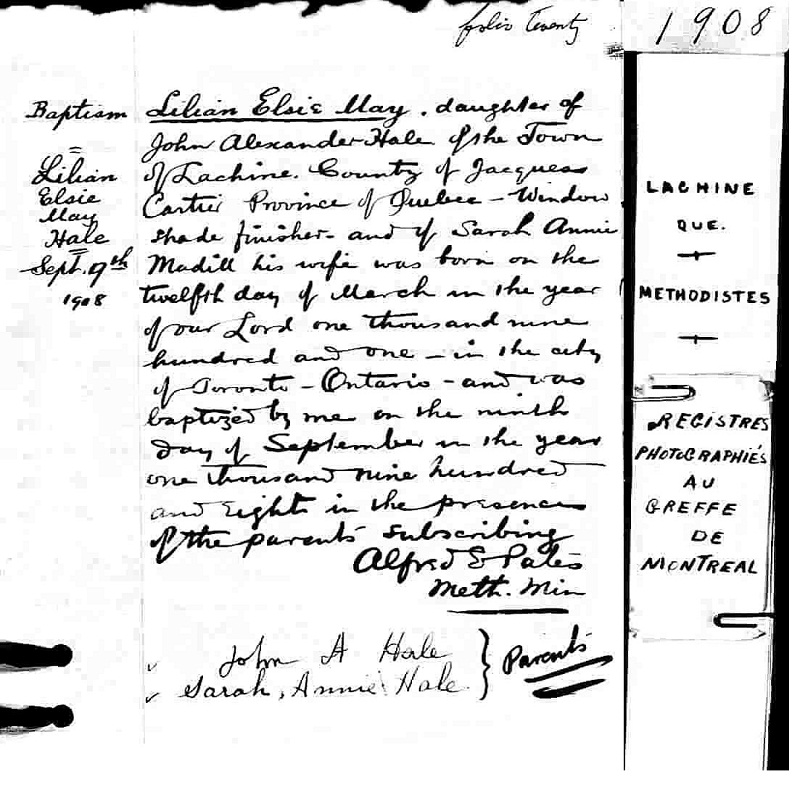 folio Twenty
1908
Baptism
=
Lilian
Elsie
May
Hale
=
Sept. 9th
1908
Lilian Elsie May, daughter of
John Alexander Hale of the Town
of Lachine. County of Jacques
Cartier Province of Quebec - Window
shade finisher - and of Sarah Annie
Madill his wife was born on the
twelfth day of March in the year
of our Lord one thousand nine
hundred and one - in the city
of Toronto - Ontario - and was
baptized by me on the ninth
day of September in the year
one thousand nine hundred
and Eight in the presence
of the parents subscribing
Alfred E
Meth. Min
John A Hale
Sarah, Annie Hale
} Parents
LACHINE
QUE.
METHODISTES
REGISTRES
PHOTOGRAPHIÉS
AU
GREFFE
DE
MONTREAL